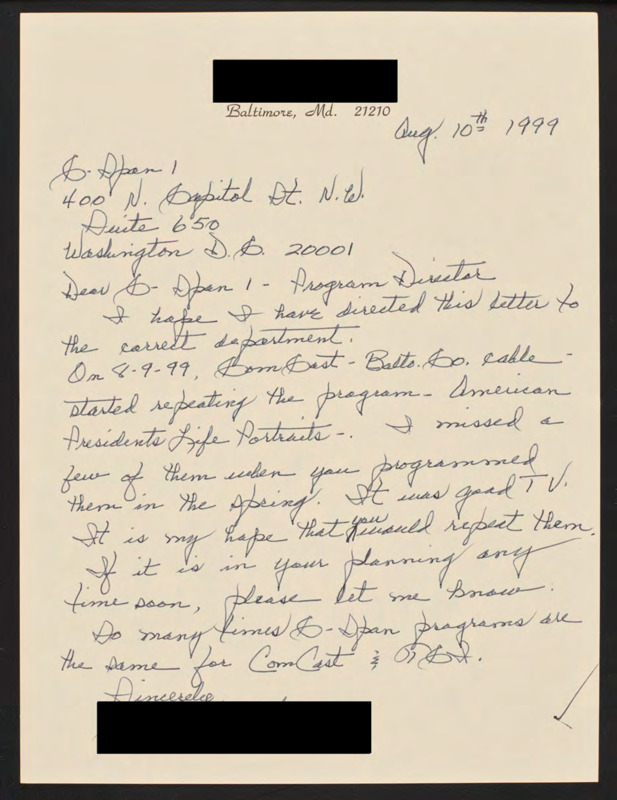 Baltimore, Md. 21210
Aug. 10th 1999
C-Span 1
400 N. Capitol St. N.W.
Suite 650
Washington D.C. 20001
Dear C-Span 1 - Program Director
I hope I have directed this letter to
the correct department.
On 8-9-99, ComCast - Balto. Co. cable -
started repeating the program - American
Presidents Life Portraits -. I missed a
few of them when you programmed
them in the spring. It was good TV.
It is my hope that you would repeat them.
If it is in your planning any
time soon, please let me know.
So many times C-Span programs are
the same for ComCast &
Sincerely